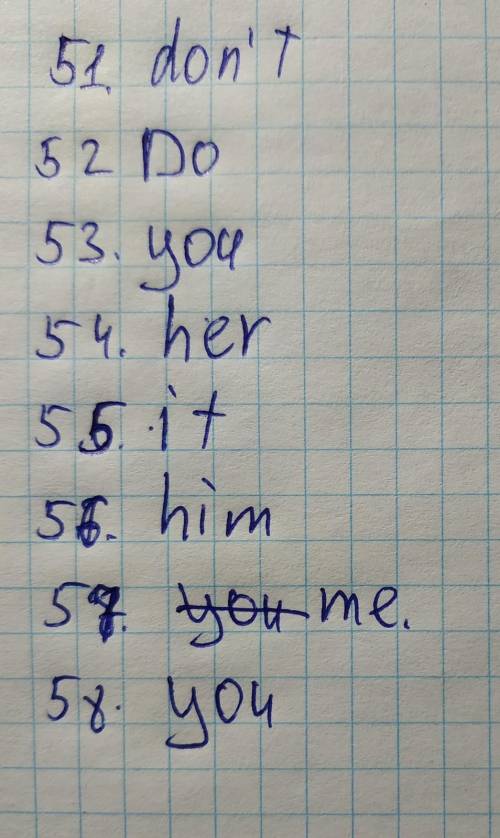 51. don't
52 Do
53. you
54. her
55. it
56. him
57. you me.
58. you